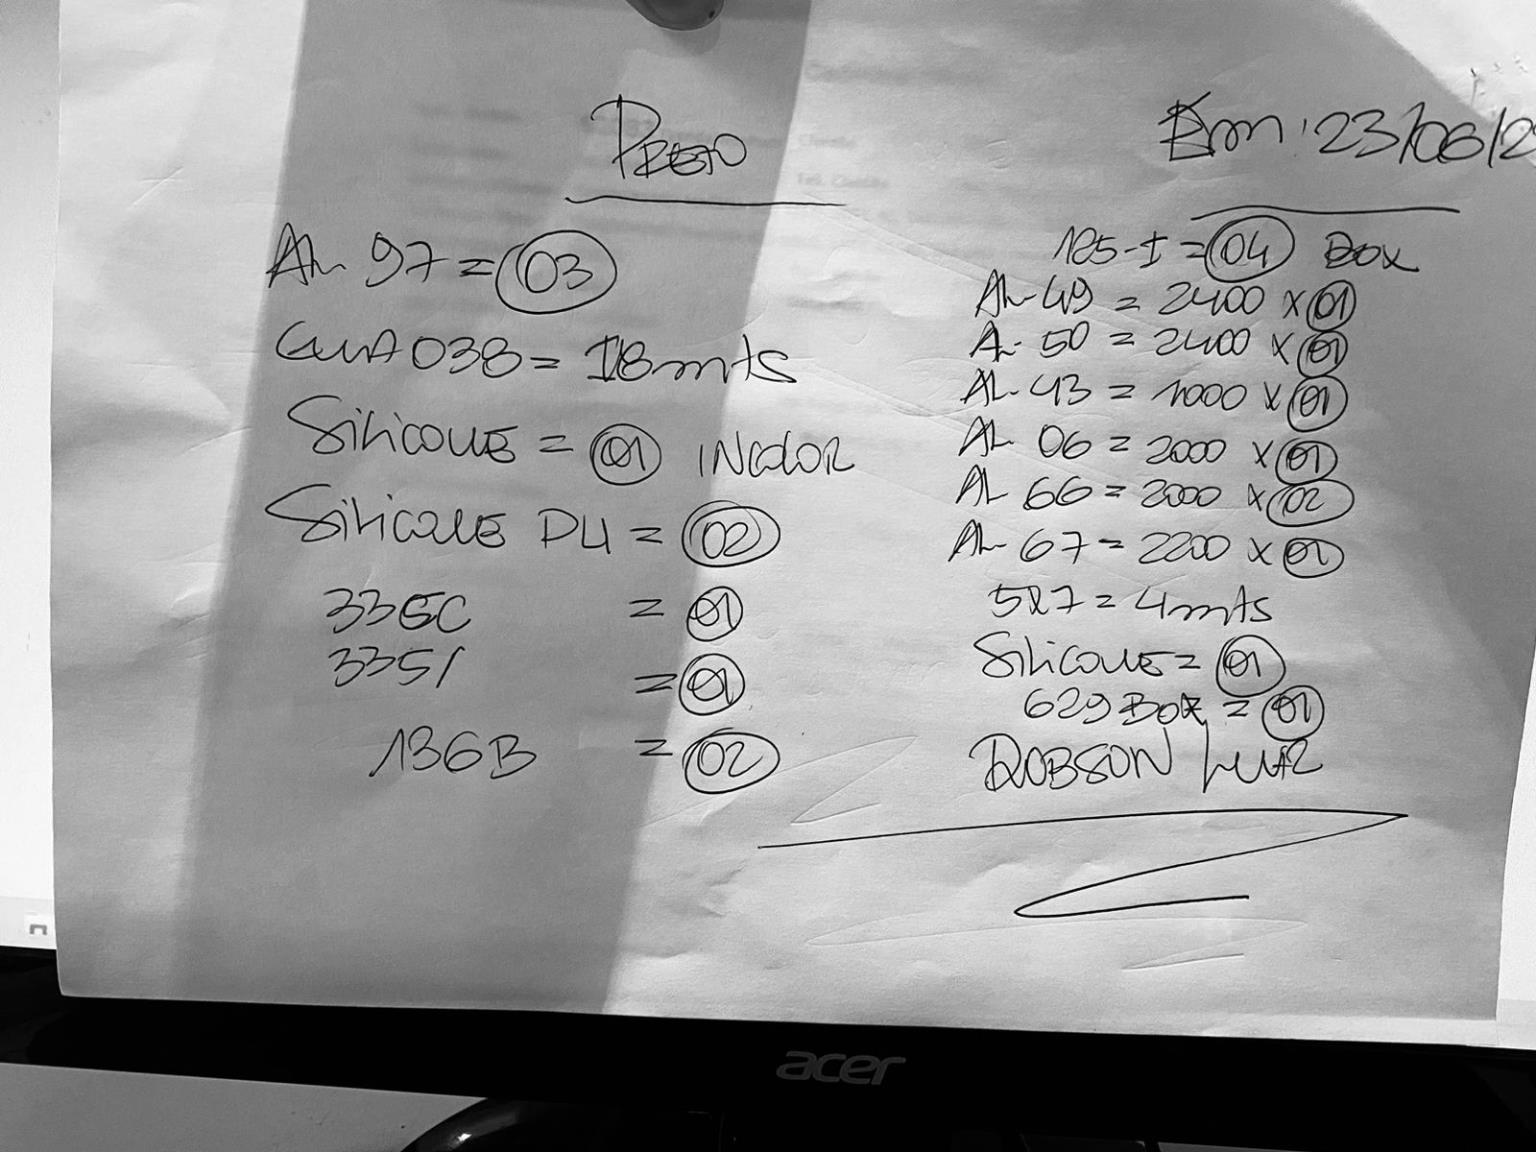 Em: 23/06/2
AL 97 = 03
GUA 038 = 18mts
Silicone = 01 INCOLOR
Silicone PU = 02
335C = 01
335I = 01
136B = 02
125-I = 04 BOX
AL-49 = 2400 x 01
AL-50 = 2400 x 01
AL-43 = 1000 x 01
AL 06 = 2000 x 01
AL 66 = 2000 x 02
AL-67 = 2200 x 01
527 = 4mts
Silicone = 01
629 BOX = 01
ROBSON LUIZ
acer